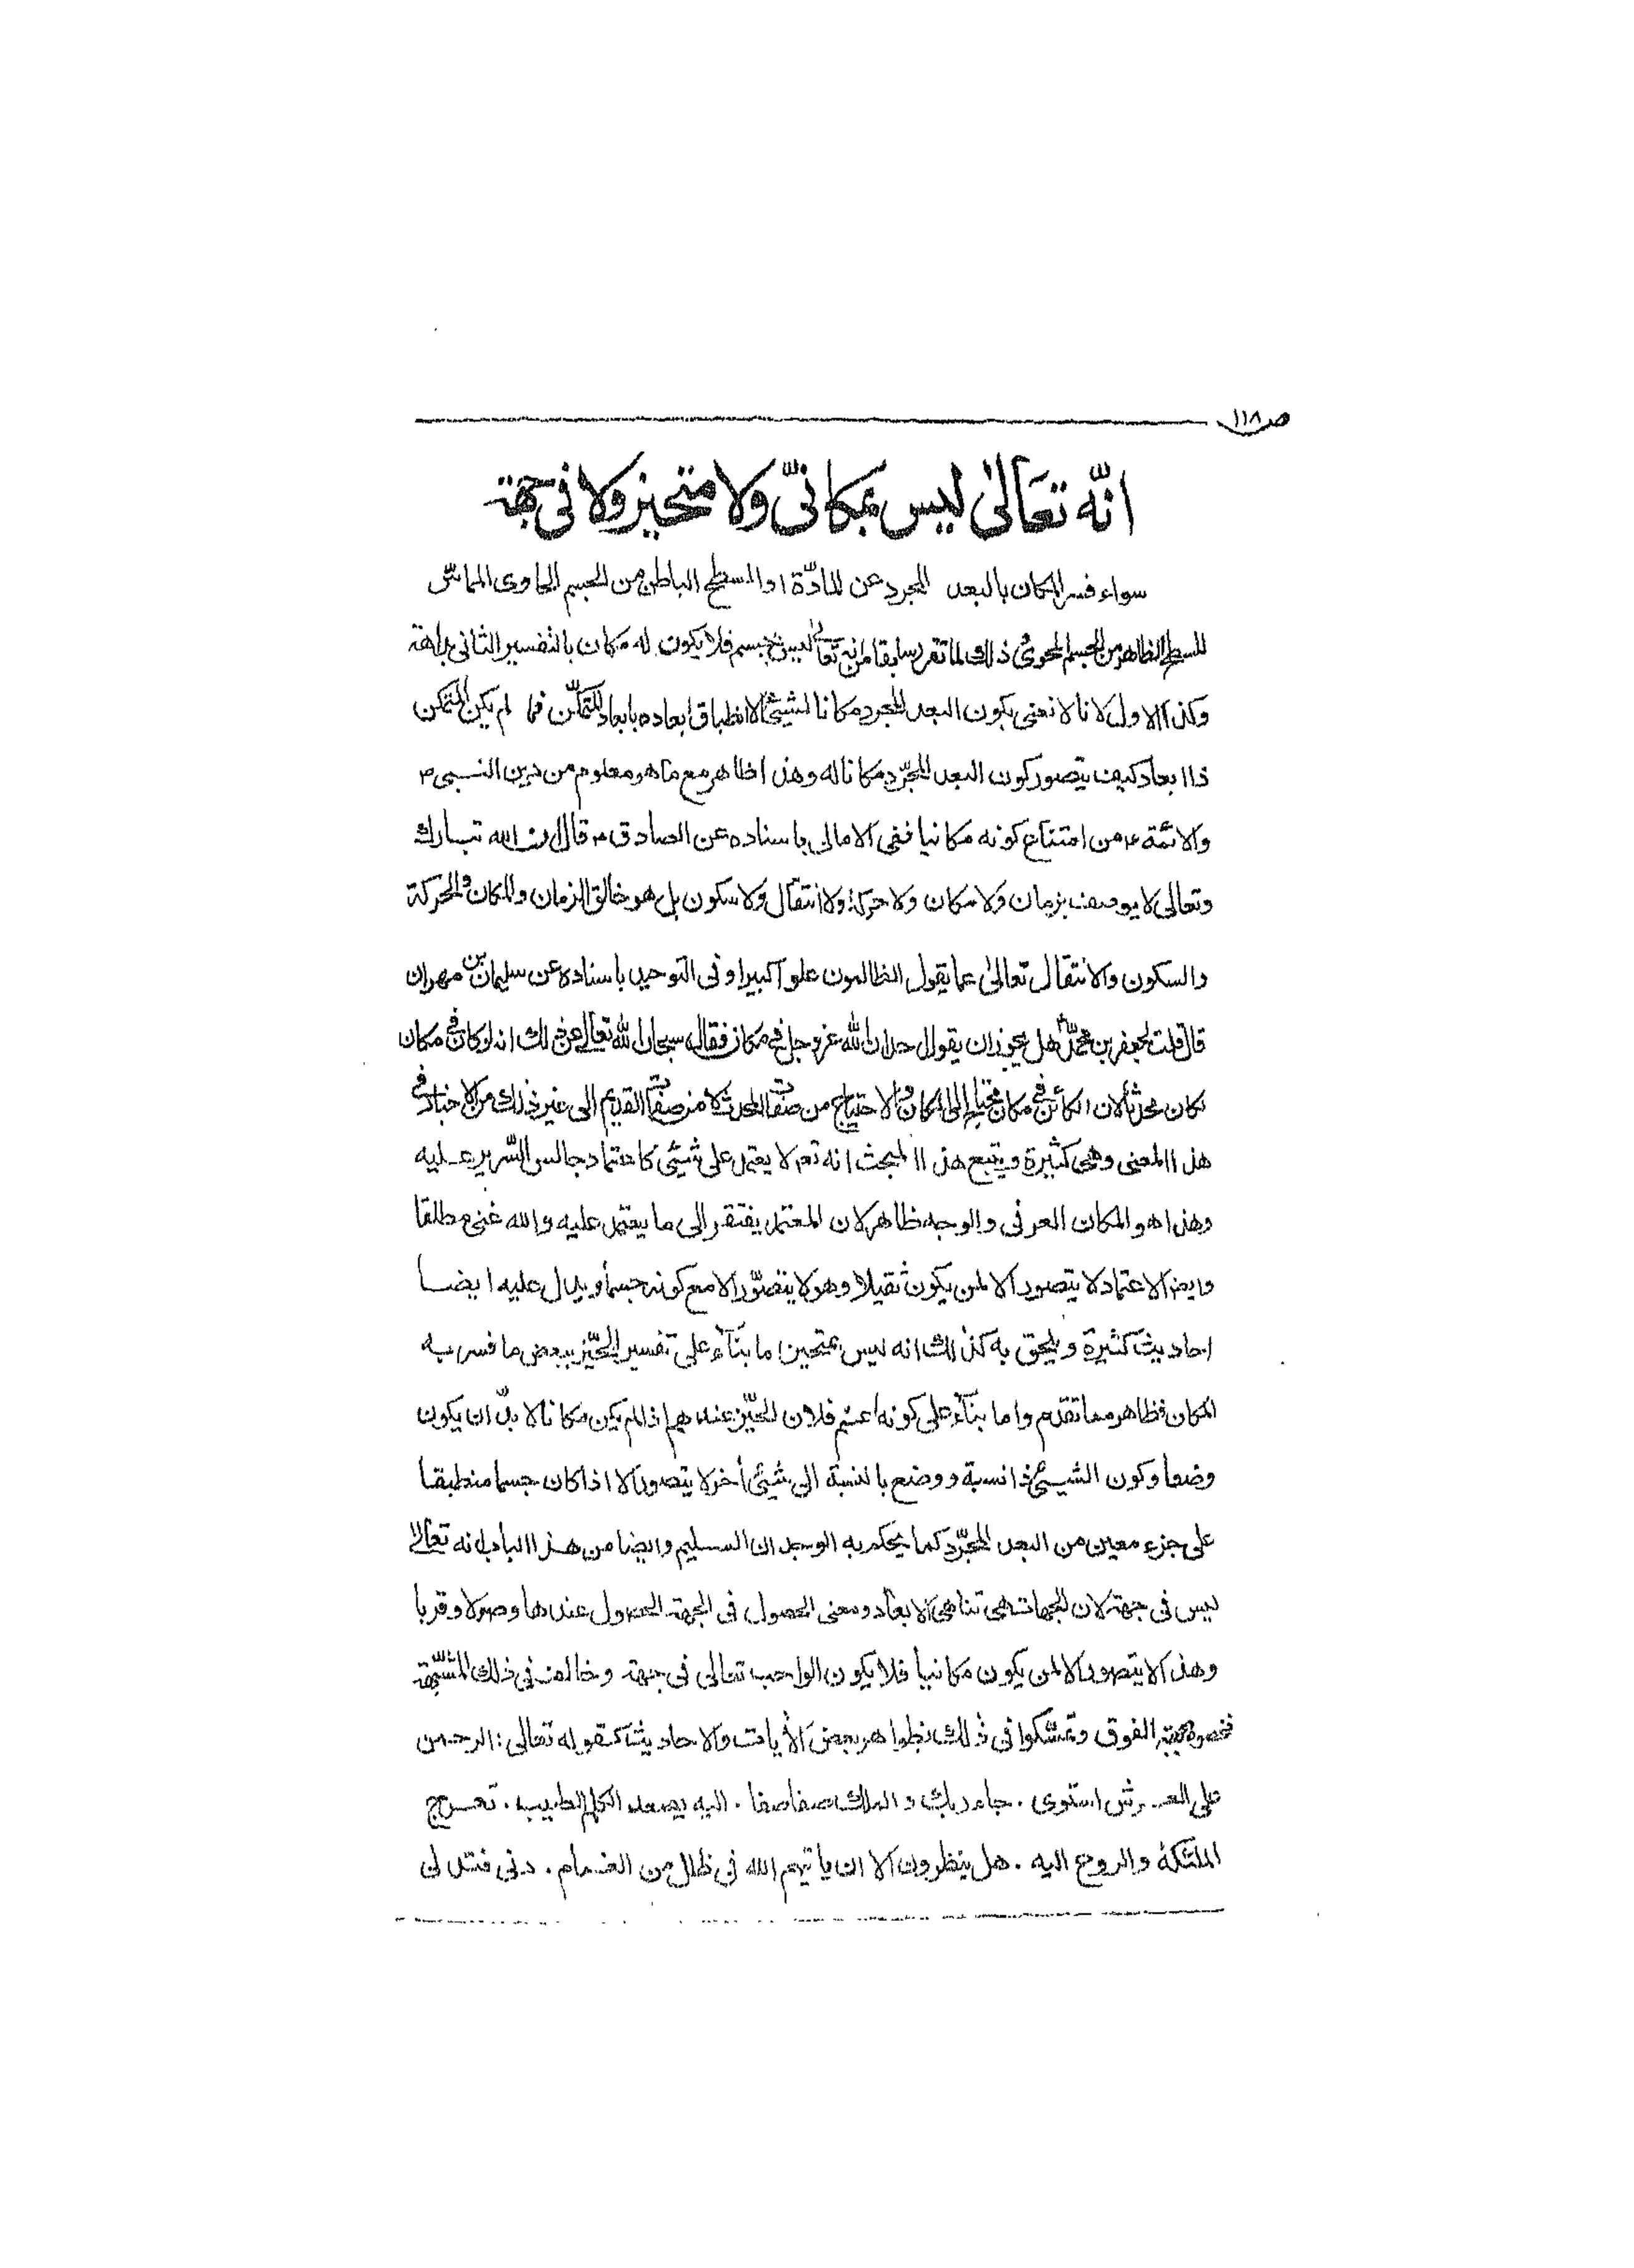 ص ١١٨
انّه تعَالىٰ ليس بمكانىّ ولا متحيز ولا فى جهة
سواء فسر المكان بالبعد المجرد عن المادّة او السطح الباطن من الجسم الحاوى المماسّ
للسطح الظاهر من الجسم المحوى ذلك لما تقرر سابقا من انه تعالى ليس بجسم فلا يكون له مكان بالتفسير الثانى بداهة
وكذا الاول لانا لا نعنى بكون البعد المجرد مكانا لشيئ الا انطباق ابعاده بابعاد المتمكّن فما لم يكن المتمكن
ذا ابعاد كيف يتصور كون البعد المجرّد مكانا له وهذا ظاهر مع ما هو معلوم من دين النبى ص
والائمة ع من امتناع كونه مكانيا ففى الامالى باسناده عن الصادق ع قال ان الله تبارك
وتعالى لا يوصف بزمان ولا مكان ولا حركة ولا انتقال ولا سكون بل هو خالق الزمان والمكان والحركة
والسكون والانتقال تعالىٰ عما يقول الظالمون علوا كبيرا وفى التوحيد باسناده عن سليمان بن مهران
قال قلت لجعفر بن محمّد هل يجوز ان يقول ان الله عز وجل فى مكان فقال سبحان الله تعالى عن ذلك انه لو كان فى مكان
لكان محدثا لان الكائن فى مكان محتاج الى المكان والاحتياج من صفات المحدث لا من صفات القديم الى غير ذلك من الاخبار فى
هذا المعنى وهى كثيرة ويتبع هذا المبحث انه تع لا يعتمد على شيئ كاعتماد جالس السّرير عليه
وهذا هو المكان العرفى والوجه ظاهر لان المعتمد يفتقر الى ما يعتمد عليه والله غنى مطلقا
وايضا الاعتماد لا يتصور الا لمن يكون ثقيلا وهو لا يتصّور الا مع كونه جسما ويدل عليه ايضا
احاديث كثيرة ويلحق به كذلك انه ليس بمتحيز اما بنآء على تفسير الحيّز ببعض ما فسر به
المكان فظاهر مما تقدم واما بنآء على كونه اعم فلان الحيّز عندهم اذا لم يكن مكانا لا بدّ ان يكون
وضعا وكون الشيئ ذا نسبة ووضع بالنسبة الى شيئ أخر لا يتصور الا اذا كان جسما منطبقا
على جزء معين من البعد المجرّد كما يحكم به الوجدان السليم وايضا من هذا الباب انه تعالى
ليس فى جهة لان الجهات هى تناهى الابعاد ومعنى الحصول فى الجهة الحصول عندها وصولا وقربا
وهذا لا يتصور الا لمن يكون مكانيا فلا يكون الواجب تعالى فى جهة وخالف فى ذلك المشبّهة
فخصوه بجهة الفوق وتمسّكوا فى ذلك بظواهر بعض الأيات والاحاديث كقوله تعالى : الرحمن
على العرش استوى . جاء ربك والملك صفا صفا . اليه يصعد الكلم الطيب . تعرج
الملئكة والروح اليه . هل ينظرون الا ان ياتيهم الله فى ظلل من الغمام . دنى فتدلى